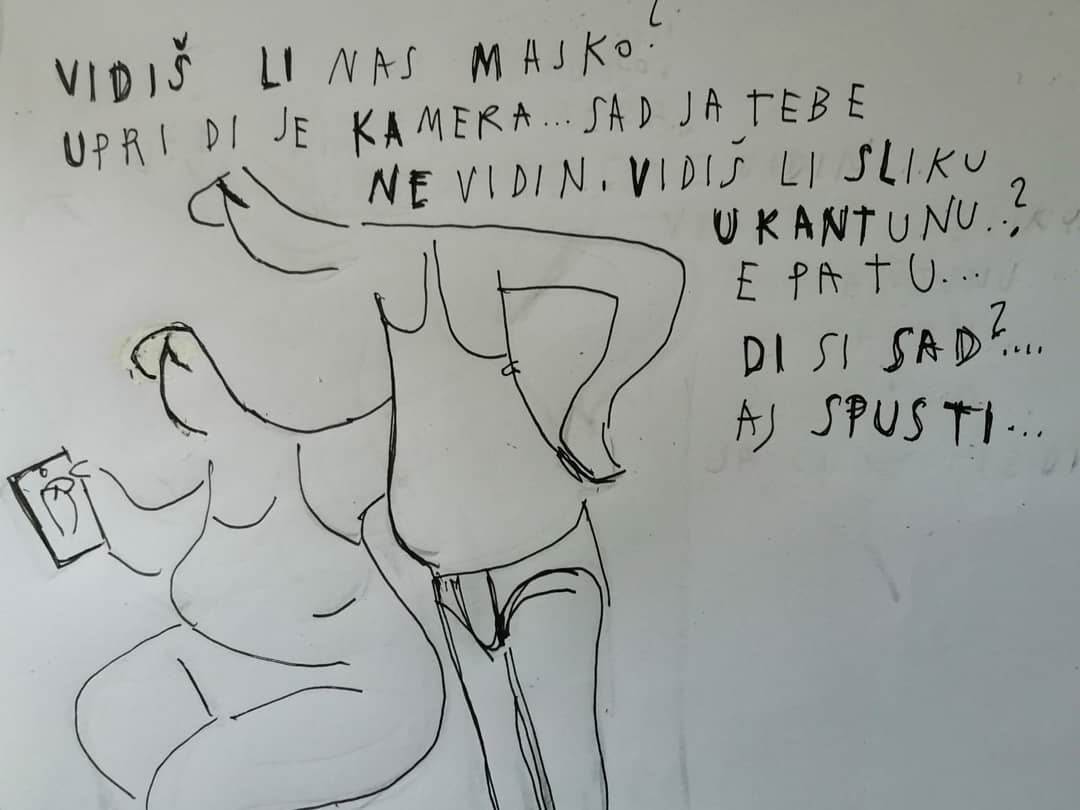 VIDIŠ LI NAS MAJKO?
UPRI DI JE KAMERA... SAD JA TEBE
NE VIDIN. VIDIŠ LI SLIKU
U KANTUNU..?
E PA TU...
DI SI SAD?....
AJ SPUSTI...